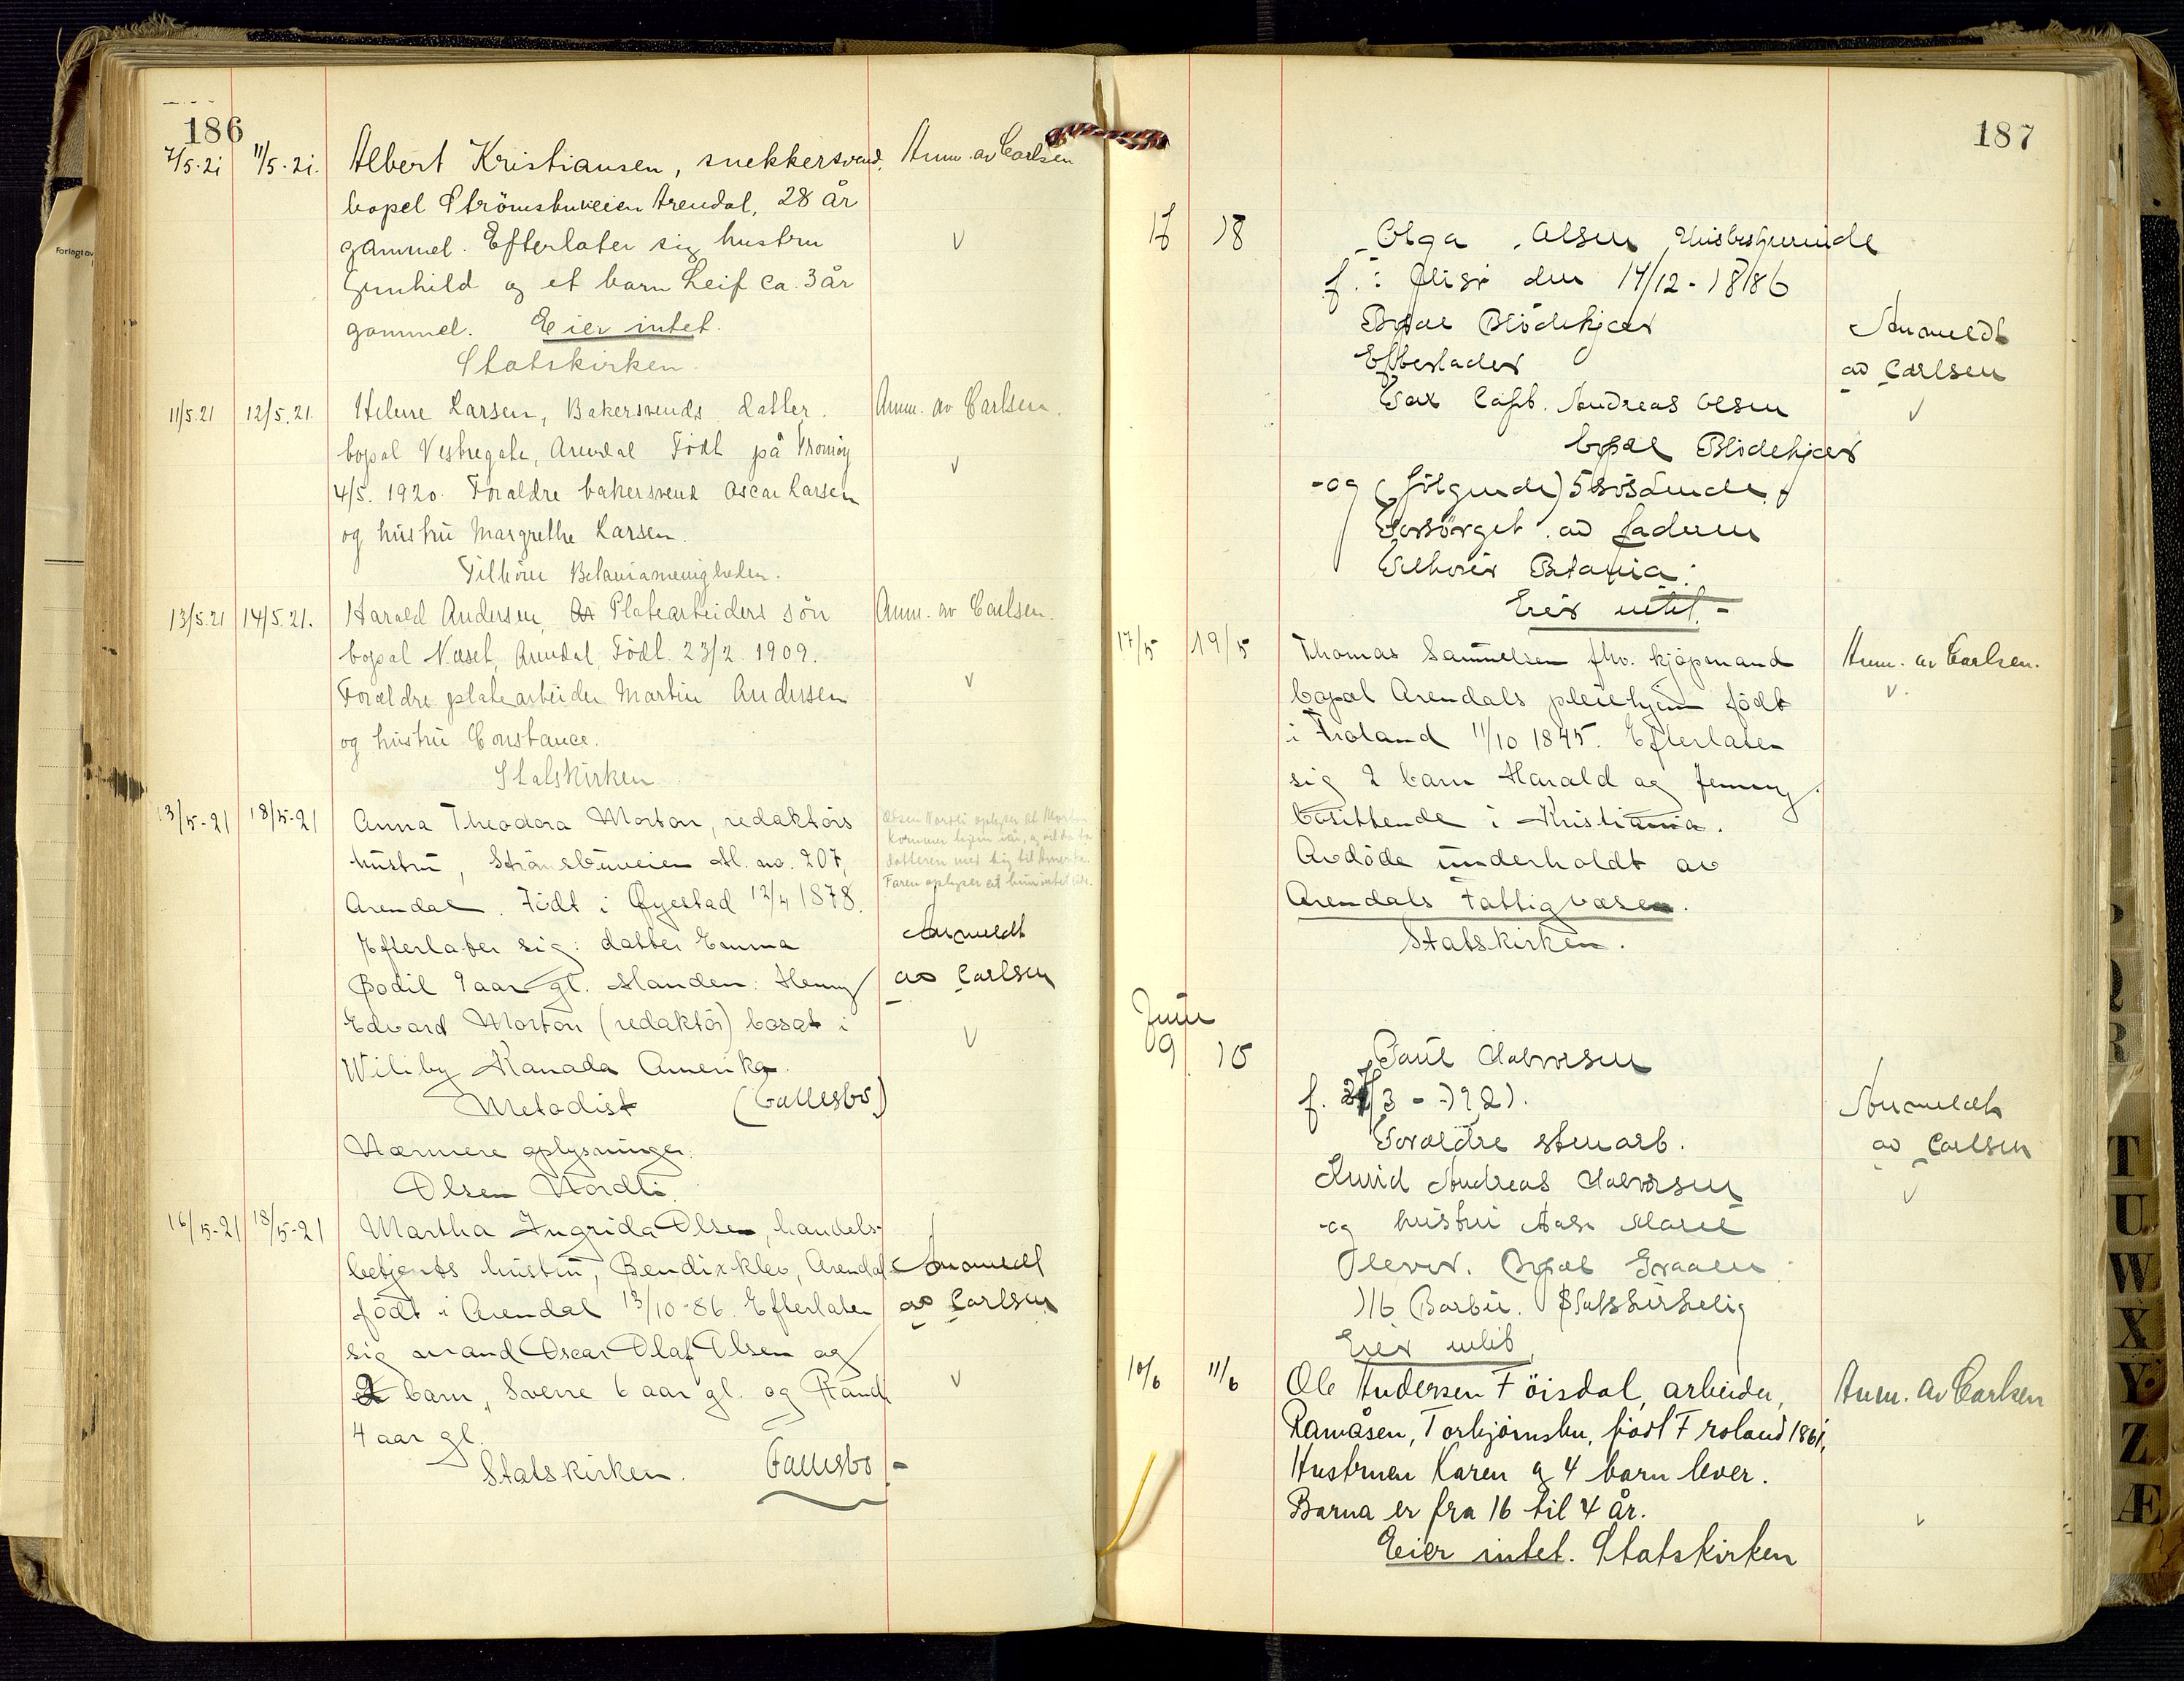 186
7/5-21 11/5-21. Albert Kristiansen, snekkersvend. Anm. av Carlsen
bopel Strömsbuveien Arendal, 28 år
gammel. Efterlater sig hustru
Gunhild og et barn Leif ca. 3 år
gammel. Eier intet.
Statskirken.
11/5.21 12/5.21. Helene Larsen, Bakersvends datter. Anm. av Carlsen.
bopal Vestregate, Arendal Födt på Tromöy
4/5. 1920. Foraldre bakersvend Oscar Larsen
og hustru Margrethe Larsen.
Tilhörer Betaniamenigheden.
13/5.21 14/5.21. Harald Andersen, Platearbeiders sön Anm. av Carlsen.
bopal Næset, Arendal, Födt. 23/2. 1909.
Forældre platearbeider Martin Andersen
og hustru Constance.
Statskirken
13/5-21 18/5-21 Anna Theodora Morton, redaktörs
hustru, Strömsbuveien M. no. 207,
Arendal. Födt i Øyestad 12/4 1878.
Olsen Nordli oplyser at Morton
kommer hjem
datteren med sig til Amerika.
Faren oplyser at hun intet
Efterlater sig: datter Emma
Bodil 9 aar gl. Manden: Henry
Edvard Morton (redaktör) bosat i
Kanada Amerika.
Anmeldt
av Carlsen
Metodist (Fællesbo)
Nærmere oplysninger:
Olsen Nordli.
16/5-21 18/5-21 Martha Ingrida Olsen, handels-
betjents hustru, Bendixklev, Arendal Anmeldt
födt i Arendal 13/10-86. Efterlater av Carlsen
sig mand Oscar Olaf Olsen og
2 barn, Sverre 6 aar gl. og Rand
4 aar gl.
Statskirken. Fællesbo -
187
17 18 Olga Olsen Husbestyrerinde
f. i den 14/12 - 1886
Bopæl Blödekjær Anmeldt
Efterlader av Carlsen
Far Andreas Olsen
bopæl Blödekjær
-og (fölgende) 5 sösdende
Forsörget av faderen
Tilhörer Betania.
Eier intet. -
17/5 19/5 Thomas Samuelsen fhv. kjöpmand Anm. av Carlsen.
bopæl Arendals pleiehjem födt
i Froland 11/10 1845. Efterlater
sig 2 barn Harald og Jenny.
bosittende i Kristiania.
Avdöde underholdt av
Arendals Fattigvæsen.
Statskirken.
Juni
9 10 Paul Halvorsen
f. /3 - 1921. Anmeldt
Forældre stenarb. av Carlsen
Knud Andreas Halvorsen
-og hustru Marie
Bopæl
116 Barbu. Statskirkelig
Eier intet
10/6 11/6 Ole Andersen Föisdal, arbeider, Anm. av Carlsen
Ramåsen, Torbjörnsbu, födt Froland 1861,
Hustruen Karen og 4 barn lever.
Barna er fra 16 til 4 år.
Eier intet. Statskirken
T
U
W
X
Y
Z
Æ